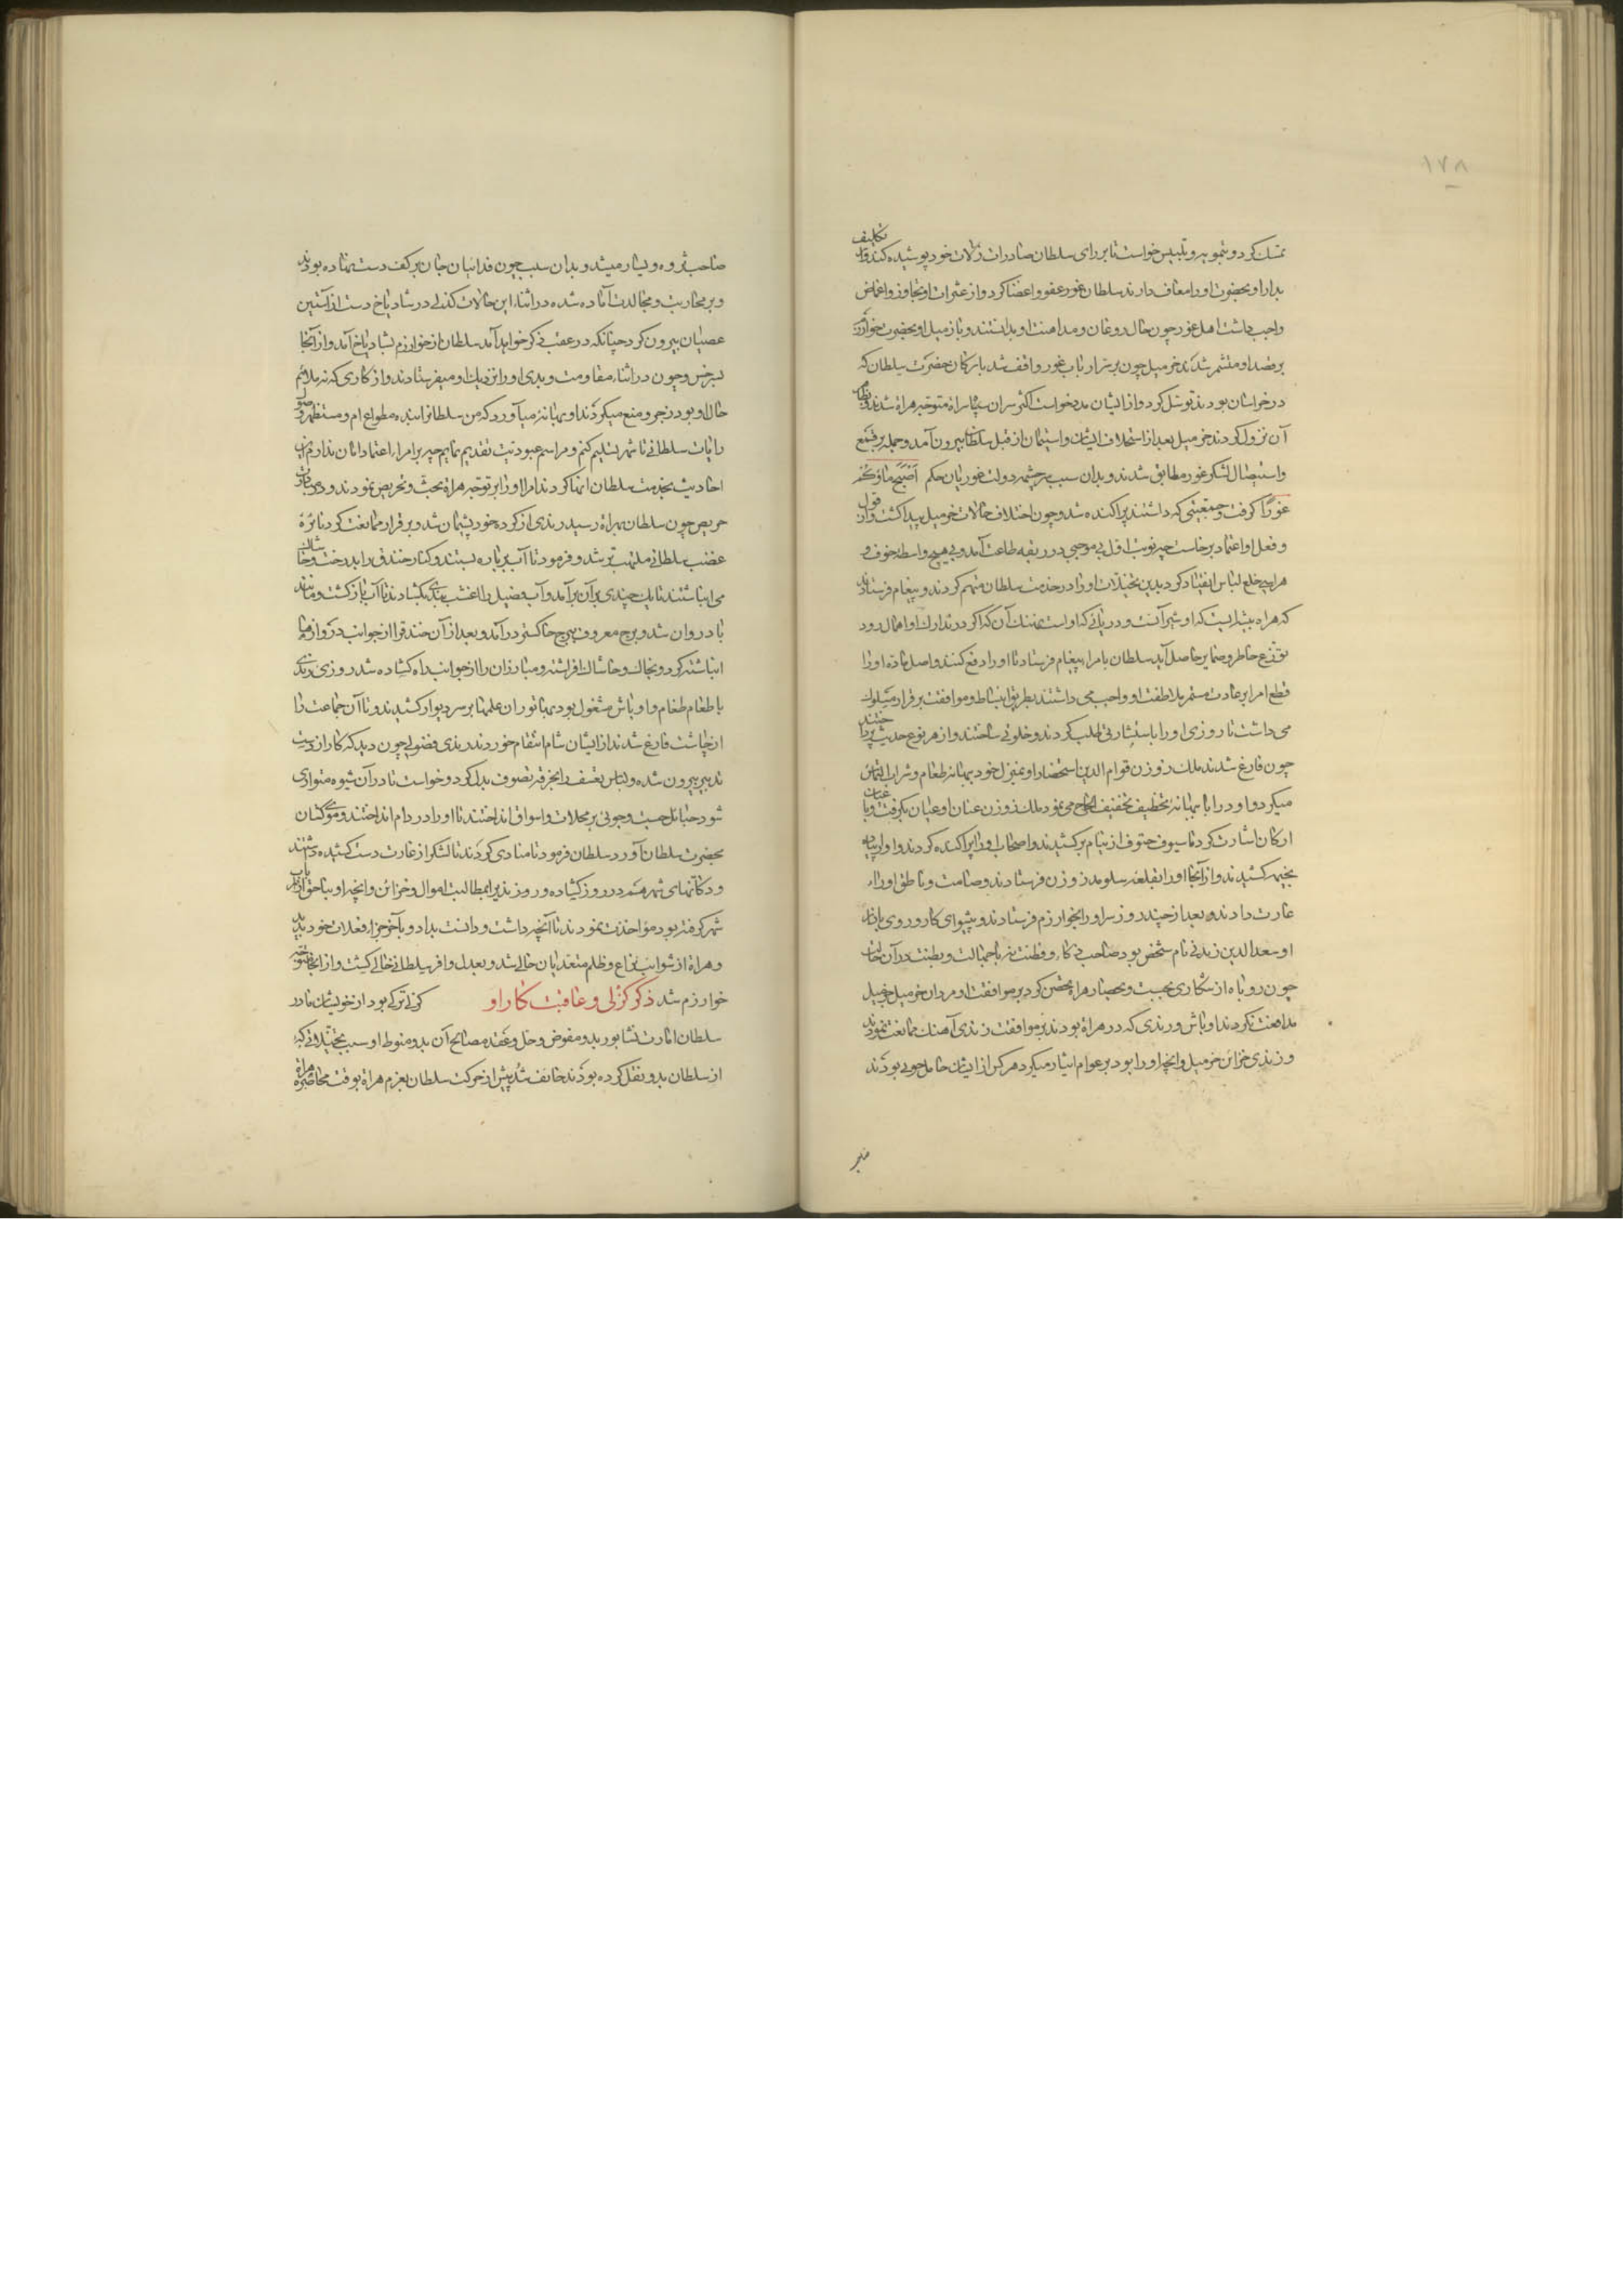 ۱۷۸
تمسک کرد و بتمویه و تلبیس خواست تا بر رای سلطان صادرات زلات خود پوشیده کند و از تکلیف
بدار او بحضرت او را معاف دارند سلطان غور عفو و اغضا کرد و از عثرات او تجاوز و اغماض
واجب داشت اهل غور چون حال روغان و مداهنت او بدانستند و باز میل او بحضرت خوارزم
بر قصد او متشمر شدند خرمیل چون بر اسرار ارباب غور واقف شد بارکان حضرت سلطان که
در خراسان بودند توسل کرد و از ایشان مدد خواست اکثر سران سپاه براه متوجه هراة شدند و بظاهر
آن نزول کردند خرمیل بعد از استحلاف ایشان و استیمان از قبل سلطان بیرون آمد و جمله بر قمع
و استیصال لشکر غور مطابق شدند و بدان سبب سرچشمه دولت غوریان حکم اصبح ماؤکم
غورا گرفت و جمعیتی که داشتند پراکنده شد و چون اختلاف حالات خرمیل پیدا گشت و از قول
و فعل او اعتماد برخاست چه نوبت اول بی موجبی در ربقه طاعت آمد و بی هیچ واسطه خوف و
هراسی خلع لباس انقیاد کرد بدین تخیلات او را در خدمت سلطان متهم کردند و پیغام فرستادند
که هراه بیشه ایست که او شیر آنست و دریائی که او است نهنگ آن که اگر در تدارک او اهمال رود
توزع خاطر و ضمایر حاصل آید سلطان بامرا پیغام فرستاد تا او را دفع کنند و اصل ماده او را
قطع امرا بر عادت مستمر ملاطفت او واجب می داشتند بطریق انبساط و موافقت بر قرار مسلوک
می داشت تا روزی او را باستشارتی طلب کردند و خلوتی ساختند و از هر نوع حدیث پرداختند
چون فارغ شدند ملک زوزن قوام الدین استحضار او بمنزل خود ببهانه طعام و شراب التماس
میکرد و او در ابا ببهانه تخفیف الحاح می نمود ملک زوزن عنان او عیان بگرفت و با
ارکان اشارت کرد تا سیوف حتوف از نیام برکشیدند و اصحاب او را پراکنده کردند و او را پیاده
بخیمه کشیدند و از آنجا او را بقلعه سلومد زوزن فرستادند و صامت و ناطق او را
غارت دادند و بعد از چند روز سر او را بخوارزم فرستادند و پیشوای کار و روی بازار
او سعد الدین رندی نام شخصی بود صاحب ذکاء و فطنت نه با جهالت و بطنت در آن حالت
چون روباه از شکاری بجست و بحصار هراه تحصن کرد بر موافقت او مردان خرمیل خیل
مدافعت کردند اوباش و رندی که در هراة بودند بر موافقت رندی آهنگ ممانعت نمودند
و رندی خزاین خرمیل و انچه او را بود بر عوام ایثار میکرد هر کس از ایشان حامل چوبی بودند
صاحب ثروه و یسار میشد و بدان سبب چون فدائیان جان بر کف دست نهاده بودند
و بر محاربت و مجالدت آماده شده در اثناء این حالات کزلی در شادیاخ دست از آستین
عصیان بیرون کرد چنانکه در عقب ذکر خواهد آمد سلطان از خوارزم بشادیاخ آمد و از آنجا
بسرخس و چون در اثناء مقاومت و بدی او را بنزدیک او میفرستادند و از کاری که نه ملایم
حال او بود زجر و منع میکردند او بهانه میآورد که من سلطانرا بنده مطواع ام و منتظر وصول
رایات سلطانی تا شهر تسلیم کنم و مراسم عبودیت تقدیم نمایم چه بر امراء اعتماد امان ندارم این
احادیث بخدمت سلطان انها کردند امرا او را بر توجه هراة بحث و تحریض نمودند
حریص چون سلطان بهراة رسید رندی از کرده خود پشیمان شد و بر قرار ممانعت کرد نائره
غضب سلطانی ملتهب تر شد و فرمود تا آب بر باره بستند و کنار خندق را بدرخت و خاشاک
می انباشتند تا یک چندی بر آن برآمد و آب فصیل را آغشت بگشادند تا آب باز گشت و مانند
باد روان شد و برج معروف ببرج خاکستر در آمد و بعد از آن خندق را از جوانب دروازها
انباشته کرد و بخاک و خاشاک افراشته و مبارزان را از جوانب راه گشاده شد روزی رندی
با طغام طغام و اوباش مشغول بود بهادران علمها بر سر دیوار کشیدند و تا آن جماعت را
از چاشت فارغ شدند از ایشان شام انتقام خوردند رندی فضولی چون دید که کار از دست
تدبیر بیرون شده و لباس تعسف را بخرقه تصوف بدل کرد و خواست تا در آن شیوه متواری
شود حبائل جست و جوی بر محلات و اسواق انداختند تا او را در دام انداختند و موی کشان
بحضرت سلطان آورد سلطان فرمود تا منادی کردند تا لشکر از غارت دست کشیده داشتند
و دکانهای شهر هم در روز گشاده و روز بدیر بمطالبت اموال و خزائن و انچه او بناحق از ارباب
شهر گرفته بود مؤاخذت نمودند تا آنچه داشت و دانست بداد و بآخر جزاء فعلات خود بدید
و هراة از شوایب نزاع و ظلم متعدیان خالی شد و بعدل وافر سلطانی حالی گشت و از آنجا متوجه
خوارزم شد ذکر کزلی و عاقبت کار او کزلی ترکی بود از خویشان مادر
سلطان امارت نشابور بدو مفوض و حل و عقد مصالح آن بدو منوط او سبب تخیلاتی که
از سلطان بدو نقل کرده بودند خائف شد پیش از حرکت سلطان بعزم هراة بوقت محاصره هراة